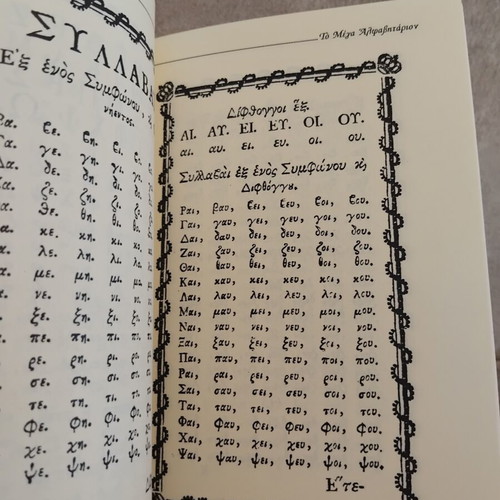 ΣΥΛΛΑΒ
Ἐξ ἑνὸς Συμφώνου,
νήεντος.
α. ϐε. ϐη. ϐι.
α. γε. γη. γι.
α. δε. δη. δι.
α. ζε. ζη. ζι.
α. θε. θη. θι.
α. κε. κη. κι.
α. λε. λη. λι.
α. με. μη. μι.
α. νε. νη. νι.
α. ξε. ξη. ξι.
α. πε. πη. πι.
ρε. ρη. ρι.
σε. ση. σι.
τε. τη. τι.
φε. φη. φι.
χε. χη. χι.
ψε. ψη. ψι.
Τὸ Μέγα Ἀλφαβητάριον
Δίφθογγοι ἕξ.
ΑΙ. ΑΥ. ΕΙ. ΕΥ. ΟΙ. ΟΥ.
αι. αυ. ει. ευ. οι. ου.
Συλλαβαὶ ἐξ ἑνὸς Συμφώνου ϗ
Διφθόγγου.
Βαι, ϐαυ, ϐει, ϐευ, ϐοι, ϐου.
Γαι, γαυ, γει, γευ, γοι, γου.
Δαι, δαυ, δει, δευ, δοι, δου.
Ζαι, ζαυ, ζει, ζευ, ζοι, ζου.
Θαι, θαυ, θει, θευ, θοι, θου.
Και, καυ, κει, κευ, κοι, κου.
Λαι, λαυ, λει, λευ, λοι, λου.
Μαι, μαυ, μει, μευ, μοι, μου.
Ναι, ναυ, νει, νευ, νοι, νου.
Ξαι, ξαυ, ξει, ξευ, ξοι, ξου.
Παι, παυ, πει, πευ, ποι, που.
Ραι, ραυ, ρει, ρευ, ροι, ρου.
Σαι, σαυ, σει, σευ, σοι, σου.
Ται, ταυ, τει, τευ, τοι, του.
Φαι, φαυ, φει, φευ, φοι, φου.
Χαι, χαυ, χει, χευ, χοι, χου.
Ψαι, ψαυ, ψει, ψευ, ψοι, ψου.
Ἕτε-